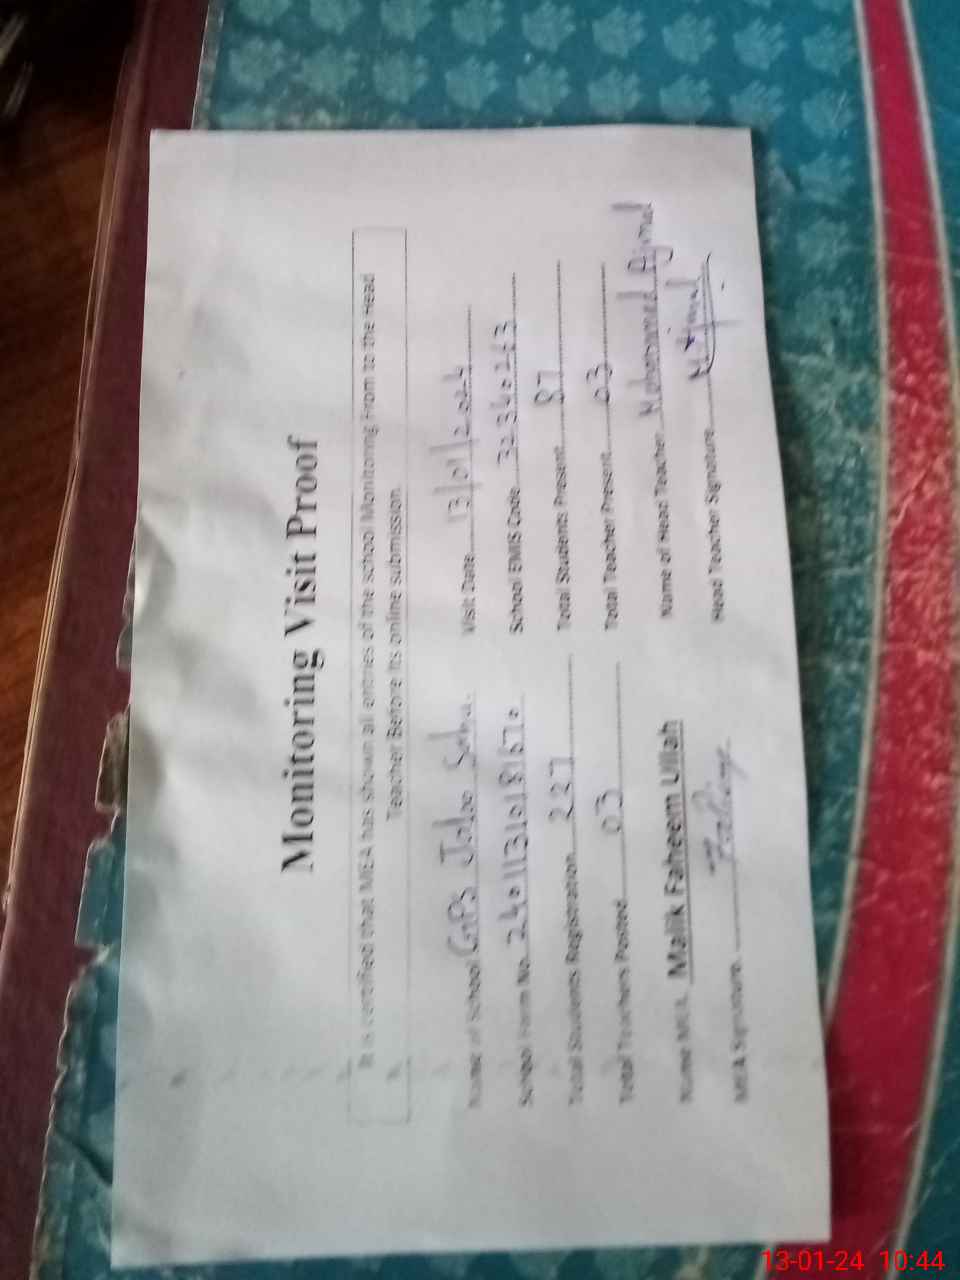 Monitoring Visit Proof
It is certified that MEA has shown all entries of the school Monitoring From to the Head
Teacher Before its online submission.
Name of School GPS Jaloo Sehu. Visit Date 13/01/2024
School Form No. 2401131018167. School EMIS Code 32340263
Total Students Registration 227 Total Students Present 87
Total Teachers Posted 03 Total Teacher Present 03
Name MEA. Malik Faheem Ullah Name of Head Teacher Mohammed Ajmal
MEA Signature. Faheem Head Teacher Signature M Ajmal
13-01-24 10:44